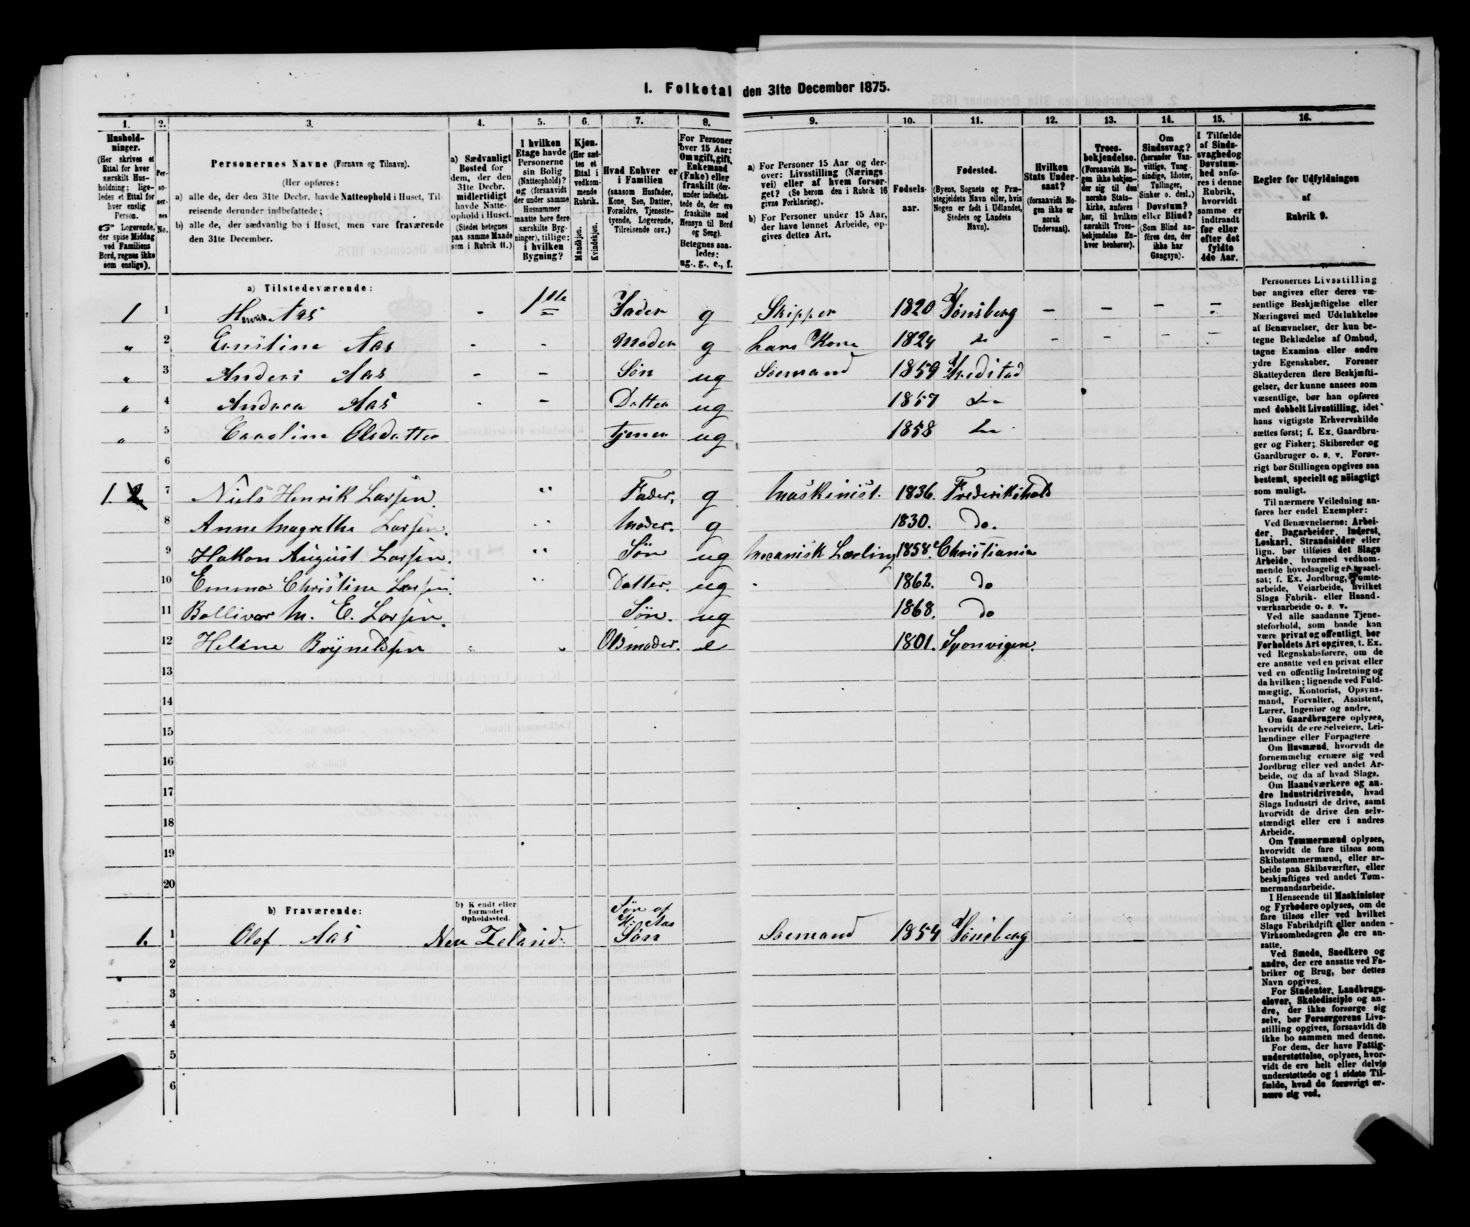 1. Folketal den 31te December 1875.
1. 2. 3. 4. 5. 6. 7. 8. 9. 10. 11. 12. 13. 14. 15. 16.
Husholdninger.
(Her skrives et Ettal for hver særskilt Husholdning; ligeledes et Ettal for hver enslig Person.
☞ Logerende, der spise Middag ved Familiens Bord, regnes ikke som enslige).
Personernes No.
Personernes Navne (Fornavn og Tilnavn).
(Her opføres:
a) alle de, der den 31te Decbr. havde Natteophold i Huset, Tilreisende derunder indbefattede;
b) alle de, der sædvanlig bo i Huset, men vare fraværende den 31te December.
a) Sædvanligt Bosted for dem, der den 31te Decbr. midlertidigt havde Natteophold i Huset.
(Stedet betegnes paa samme Maade som i Rubrik 11.)
I hvilken Etage havde Personerne sin Bolig (Natteophold)? og (forsaavidt der under samme Husnummer maatte høre flere særskilte Bygninger), tillige: i hvilken Bygning?
Kjøn.
(Her sættes et Ettal i vedkommende Rubrik.
Mandkjøn.
Kvindekjøn.
Hvad Enhver er i Familien
(saasom Husfader, Kone, Søn, Datter, Forældre, Tjenestetyende, Logerende, Tilreisende osv.)
For Personer over 15 Aar: Om ugift, gift, Enkemand (Enke) eller fraskilt (derunder indbefattede de, der ere fraskilte med Hensyn til Bord og Seng).
Betegnes saaledes: ug., g., e., f.
a) For Personer 15 Aar og derover: Livsstilling (Næringsvei) eller af hvem forsørget? (Se herom den i Rubrik 16 givne Forklaring).
b) For Personer under 15 Aar, der have lønnet Arbeide, opgives dettes Art.
Fødselsaar.
Fødested.
(Byens, Sognets og Præstegjeldets Navn eller, hvis Nogen er født i Udlandet, Stedets og Landets Navn).
Hvilken Stats Undersaat?
(forsaavidt Nogen ikke er norsk Undersaat).
Troesbekjendelse.
(Forsaavidt Nogen ikke bekjender sig til den norske Statskirke, anføres her, til hvilken særskilt Troesbekjendelse Enhver henhører).
Om Sindssvag? (herunder Vanvittige, Tungsindige, Idioter, Tullinger, Sinker o. desl.) Døvstum? eller Blind? (Som Blind anføres den, der ikke har Gangsyn).
I Tilfælde af Sindssvaghed og Døvstumhed anføres i denne Rubrik, hvorvidt samme er indtraadt før eller efter det fyldte 4de Aar.
Regler for Udfyldningen af Rubrik 9.
a) Tilstedeværende:
1 1 Aas 1ste Fader g Skipper 1820 Tønsberg
" 2 Ernstine Aas Moder g hans Kone 1824 do
" 3 Anders Aas Søn ug Sømand 1859 Fredstad
" 4 Andrea Aas Datter ug 1857 do
" 5 Caroline Olsdatter tjener ug 1858 do
6
1. 2 7 Niels Henrik Larsen. " Fader, g Maskinist. 1836. Frederikshald
8 Anne Magrethe Larsen. " Moder. g 1830. do.
9 Hakon August Larsen. " Søn ug Mecanisk Lærling 1858. Christiania
10 Emma Christine Larsen. " Datter. ug 1862. do
11 Bollivar M. E. Larsen. Søn. ug 1868. do
12 Helene Brynildsen Olsmoder. e 1801. Sponvigen.
13
14
15
16
17
18
19
20
b) Fraværende:
b) Kjendt eller formodet Opholdssted.
1. 1 Olaf Aas New Zeland. Søn af Aas Søn Sømand 1854 Tønsberg
2
3
4
5
6
Personernes Livsstilling bør angives efter deres væsentlige Beskjæftigelse eller Næringsvei med Udelukkelse af Benævnelser, der kun betegne Beklædelse af Ombud, tagne Examina eller andre ydre Egenskaber. Forener Skatteyderen flere Beskjæftigelser, der kunne ansees som væsentlige, bør han opføres med dobbelt Livsstilling, idet hans vigtigste Erhvervskilde sættes først; f. Ex. Gaardbruger og Fisker; Skibsreder og Gaardbruger o. s. v. Forøvrigt bør Stillingen opgives saa bestemt, specielt og nøiagtigt som muligt.
Til nærmere Veiledning anføres her endel Exempler:
Ved Benævnelserne: Arbeider, Dagarbeider, Inderst, Løskarl, Strandsidder eller lign. bør tilføies det Slags Arbeide, hvormed vedkommende hovedsagelig er sysselsat; f. Ex. Jordbrug, Tomtearbeide, Veiarbeide, hvilket Slags Fabrik- eller Haandværksarbeide o. s. v.
Ved alle saadanne Tjenesteforhold, som baade kan være privat og offentligt, bør Forholdets Art opgives, f. Ex. ved Regnskabsførere, om de ere ansatte ved en privat eller ved en offentlig Indretning og da hvilken; lignende ved Fuldmægtig, Kontorist, Opsynsmand, Forvalter, Assistent, Lærer, Ingeniør og andre.
Om Gaardbrugere oplyses, hvorvidt de ere Selveiere, Leilændinge eller Forpagtere
Om Husmænd, hvorvidt de fornemmelig ernære sig ved Jordbrug eller ved andet Arbeide, og da af hvad Slags.
Om Haandværkere og andre Industridrivende, hvad Slags Industri de drive, samt hvorvidt de drive den selvstændigt eller ere i andres Arbeide.
Om Tømmermænd oplyses, hvorvidt de fare tilsøs som Skibstømmermænd, eller arbeide paa Skibsværfter, eller beskjæftiges ved andet Tømmermandsarbeide.
I Henseende til Maskinister og Fyrbødere oplyses, om de fare tilsøs eller ved hvilket Slags Fabrikdrift eller anden Virksomhedsgren de ere ansatte.
Ved Smede, Snedkere og andre, der ere ansatte ved Fabriker og Brug, bør dettes Navn opgives.
For Studenter, Landbrugselever, Skoledisciple og andre, der ikke forsørge sig selv, bør Forsørgerens Livsstilling opgives, forsaavidt de ikke bo sammen med denne.
For dem, der have Fattigunderstøttelse, oplyses, hvorvidt de ere helt eller delvis understøttede og i sidste Tilfælde, hvad de forøvrigt ernære sig ved.